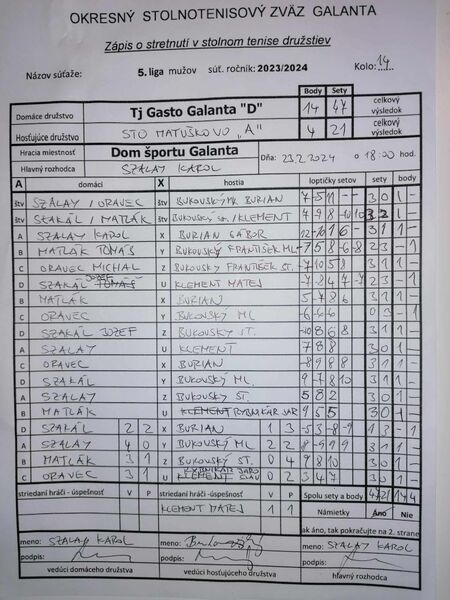 OKRESNÝ STOLNOTENISOVÝ ZVÄZ GALANTA
Zápis o stretnutí v stolnom tenise družstiev
Názov súťaže: 5. liga mužov súť. ročník: 2023/2024 Kolo: 14
Body Sety
Domáce družstvo Tj Gasto Galanta "D" 14 47 celkový výsledok
Hosťujúce družstvo STO MATÚŠKOVO "A" 4 21 celkový výsledok
Hracia miestnosť Dom športu Galanta Dňa: 23.2.2024 o 18:00 hod.
Hlavný rozhodca SZALAY KAROL
A domáci X hostia loptičky setov sety body
štv SZALAY / ORAVEC štv BUKOVSKÝ ML BURIAN 7 -5 11 - - 3 0 1 -
štv SZAKÁL / MATLÁK štv BUKOVSKÝ ST. / KLEMENT 3 2 1 -
A SZALAY KAROL X BURIAN GÁBOR 3 1 1 -
B MATLÁK TOMÁŠ Y BUKOVSKÝ FRANTIŠEK ML -7 5 8 -6 -8 2 3 - 1
C ORAVEC MICHAL Z BUKOVSKÝ FRANTIŠEK ST. -7 10 5 8 3 1 1 -
D SZAKÁL JOZEF U KLEMENT MATEJ -7 8 4 -7 -7 2 3 - 1
B MATLÁK X BURIAN 5 -7 8 6 3 1 1 -
C ORAVEC Y BUKOVSKÝ ML -6 -6 -6 0 3 - 1
D SZAKÁL JOZEF Z BUKOVSKÝ ST. -10 8 6 8 3 1 1 -
A SZALAY U KLEMENT 7 8 8 3 0 1 -
C ORAVEC X BURIAN -8 9 8 8 3 1 1 -
D SZAKÁL Y BUKOVSKÝ ML. 9 -7 8 10 3 1 1 -
A SZALAY Z BUKOVSKÝ ST. 5 8 2 3 0 1 -
B MATLÁK U RYBNIKÁR JAR 9 5 5 3 0 1 -
D SZAKÁL 2 2 X BURIAN 1 3 -5 3 -8 -9 1 3 - 1
A SZALAY 4 0 Y BUKOVSKÝ ML 2 2 8 -9 1 9 3 1 1 -
B MATLÁK 3 1 Z BUKOVSKÝ ST. 0 4 9 8 10 3 0 1 -
C ORAVEC 3 1 U 3 0 1 -
striedaní hráči - úspešnosť V P striedaní hráči - úspešnosť V P Spolu sety a body 47 21 14 4
KLEMENT MATEJ 1 1 Námietky Áno Nie
ak áno, tak pokračujte na 2. strane
meno: SZALAY KAROL meno: meno: SZALAY KAROL
podpis: podpis: podpis:
vedúci domáceho družstva vedúci hosťujúceho družstva hlavný rozhodca